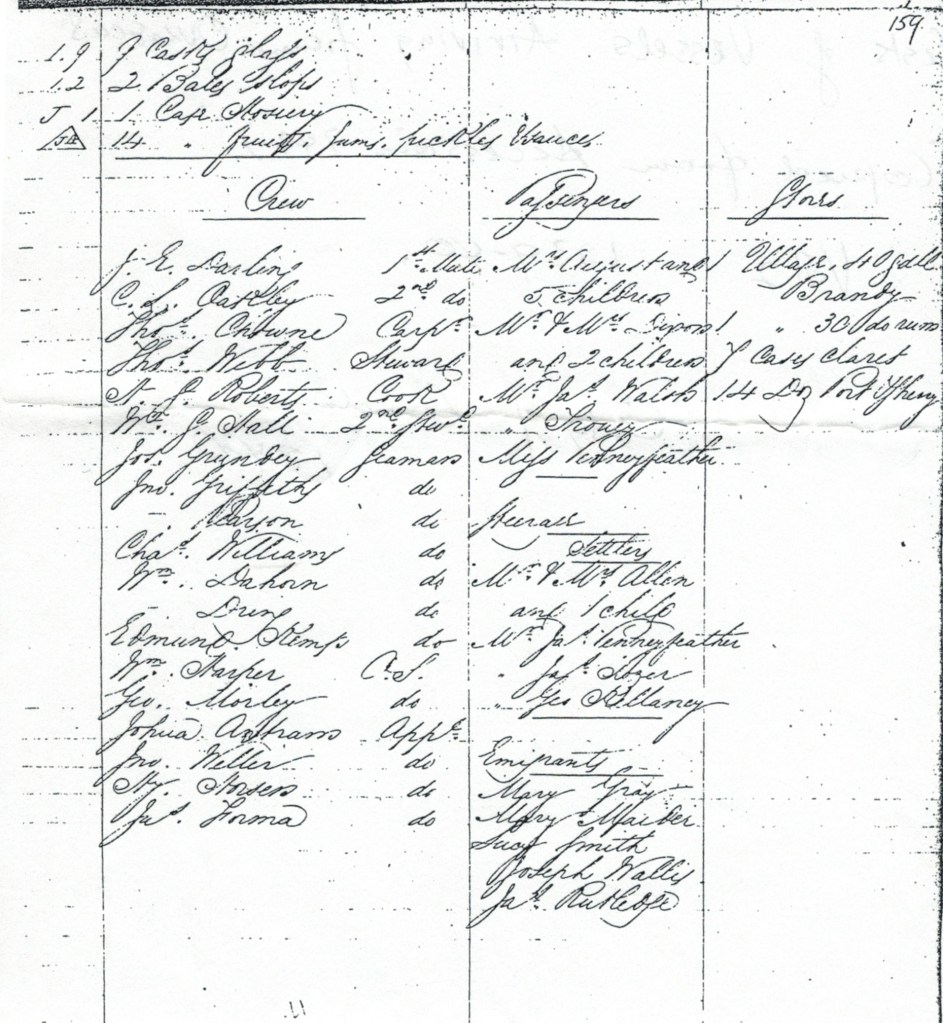 159
1.9 9 Casks Glass
1.2 2 Bales Slops
J 1 1 Case Hosiery
14 " fruits. Jams. pickles & Sauces
Crew
J. E. Darling 1st Mate
C. L. Oakley 2nd do
Thos. Chowne Carpr
Thos. Webb Steward
N. J. Roberts Cook
Wm. J. Hall 2nd Stewd
Jos. Grynbey Seaman
Jno. Griffiths do
- Pearson do
Chas. Williams do
Wm. Dahorn do
- Dring do
Edmund Kemp do
Wm. Harper O.S.
Geo. Morley do
Joshua Antram Appe
Jno. Weller do
Hy. Horsen do
Jas. Forma do
Passengers
Mrs August and
5 children
Mr & Mrs Dixon
and 2 children
Mr Jas Walsh
"
Miss Penneyfeather
Steerage
Settlers
Mr & Mrs Allen
and 1 child
Mr Jas Penneyfeather
" Jas.
" Geo Kellaney
Emigrants
Mary Gray
Mary
Lucy Smith
Joseph Wallis
Jas. Rutledge
Stores
1 Ullage, 40 gall
Brandy
1 " 30 do rum
7 Cases Claret
14 Dz Port & Sherry